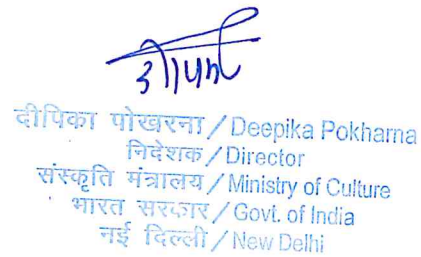 दीपिका पोखरना/Deepika Pokharna
निदेशक/Director
संस्कृति मंत्रालय/Ministry of Culture
भारत सरकार/Govt. of India
नई दिल्ली/New Delhi